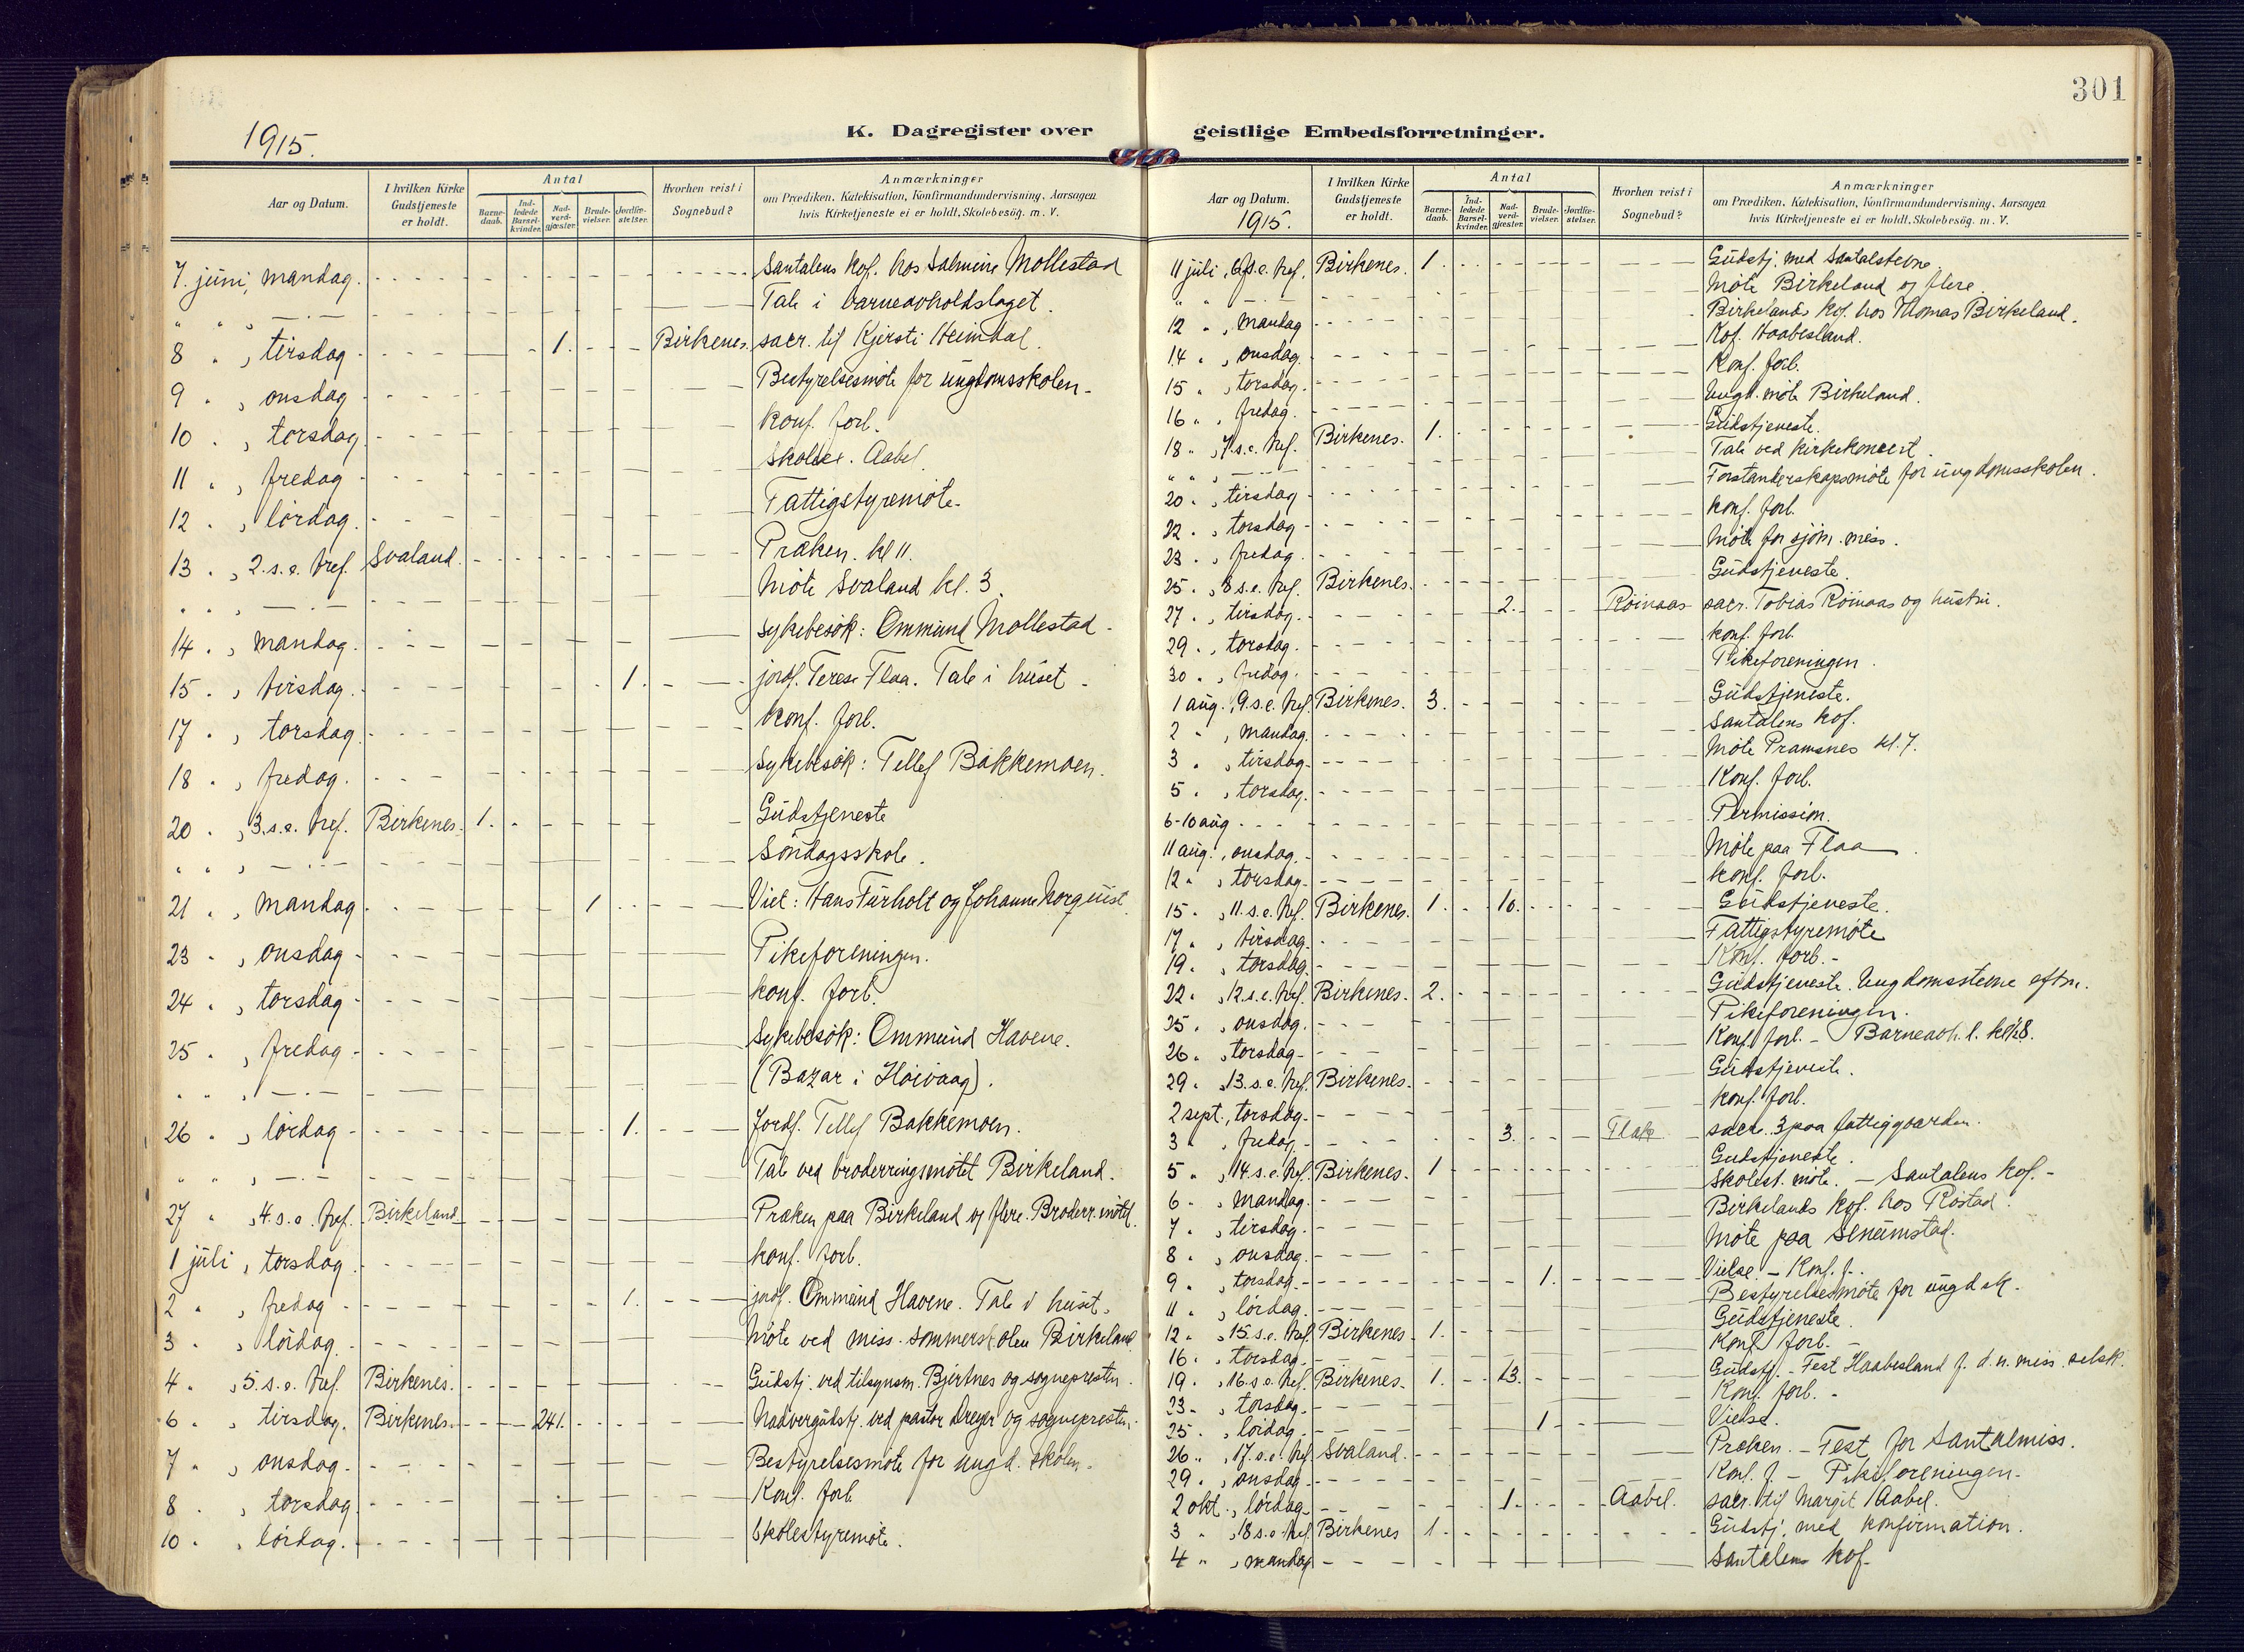 301
1915.
K. Dagregister over geistlige Embedsforretninger.
Aar og Datum. I hvilken Kirke Gudstjeneste er holdt. Antal Barnedaab. Indledede Barselkvinder. Nadverdgjæster. Brudevielser. Jordfæstelser. Hvorhen reist i Sognebud? Anmærkninger om Prædiken, Katekisation, Konfirmandundervisning, Aarsagen hvis Kirketjeneste ei er holdt, Skolebesög. m. V.
7. juni, mandag. Santalens kof. hos Salmine Mollestad
" " , —.— Tale i barneavholdslaget.
8 " , tirsdag 1. Birkenes. sacr. til Kjersti Heimdal.
9 " , onsdag Bestyrelsesmöte for ungdomsskolen.
10 . , torsdag konf. forb.
11 . , fredag skoleex. Aabel.
12 . , lördag. Fattigstyremöte.
13 . , 2.s.e. tref. Svaland. Præken. kl 11.
. . , —.— Möte Svaland kl. 3.
14 . , mandag. sykebesök: Ommund Mollestad.
15 . , tirsdag. 1. jordf. Terese Flaa. Tale i huset.
17 . , torsdag. konf. forb.
18 . , fredag. sykebesök: Tellef Bakkemoen.
20 . , 3.s.e. tref. Birkenes. 1. Gudstjeneste
" " , —.— Söndagsskole.
21 . , mandag 1 Viet: Hans Furholt og Johanne Norquist.
23 . , onsdag Pikeforeningen.
24 . , torsdag konf. forb.
25 . , fredag sykebesök: Ommund Havene.
" " , —.— (Bazar i Höivaag).
26 . , lördag 1. Jordf. Tellef Bakkemoen.
" " , —.— Tale ved broderringsmötet Birkeland.
27 " , 4.s.e. tref. Birkeland Præken paa Birkeland og flere. Broderr. mötet.
1 juli , torsdag konf. forb.
2 " , fredag 1. jordf. Ommund Havene. Tale i huset.
3 " , lördag. Möte ved miss. sommerskolen Birkeland.
4 . , 5.s.e. tref. Birkenes. Gudstj. ved tilsynsm. Bjertnes og sognepresten.
6 . , tirsdag. Birkenes. 241. Nadvergudstj. ved pastor Dreyer og sognepresten.
7 . , onsdag. Bestyrelsesmöte for ungd. skolen.
8 . , torsdag Konf. forb.
10 . , lördag. Skolestyremöte.
Aar og Datum. I hvilken Kirke Gudstjeneste er holdt. Antal Barnedaab. Indledede Barselkvinder. Nadverdgjæster. Brudevielser. Jordfæstelser. Hvorhen reist i Sognebud? Anmærkninger om Prædiken, Katekisation, Konfirmandundervisning, Aarsagen hvis Kirketjeneste ei er holdt, Skolebesög. m. V.
1915.
11 juli , 6.s.e. tref. Birkenes. 1. Gudstj. med Santalstevne.
" " , —.— Möte Birkeland og flere.
12 " , mandag Birkelands kof. hos Thomas Birkeland.
14 " , onsdag. Kof. Haabesland.
15 " , torsdag. Konf. forb.
16 " , fredag. Ungd. möte Birkeland.
18 " , 7.s.e. tref. Birkenes. 1. Gudstjeneste.
" " , —.— Tale ved kirkekoncert.
20 . , tirsdag Forstanderskapsmöte for ungdomsskolen.
22 . , torsdag konf. forb.
23 . , fredag. Möte for sjöm. miss.
25 . , 8 s.e. tref. Birkenes. Gudstjeneste.
27 . , tirsdag. 2. Röinaas sacr. Tobias Röinaas og hustru.
29 . , torsdag. konf. forb.
30 . , fredag. Pikeforeningen.
1 aug. , 9.s.e. tref. Birkenes. 3. Gudstjeneste.
2 " , mandag. Santalens kof.
3 . , tirsdag. Möte Pramsnes kl. 7.
5 . , torsdag. Konf. forb.
6-10 aug Permission.
11 aug. , onsdag. Möte paa Flaa.
12 " , torsdag. konf. forb.
15 . , 11.s.e. tref. Birkenes. 1. 10. Gudstjeneste.
17 " , tirsdag. Fattigstyremöte
19 . , torsdag. Konf. forb.
22 . , 12.s.e. tref. Birkenes. 2. Gudstjeneste. Ungdomsstevne eftm.
25 . , onsdag. Pikeforeningen.
26 . , torsdag Konf. forb. - Barneavh. l. kl 8.
29 . , 13.s.e. tref. Birkenes. Gudstjeneste.
2 sept. , torsdag. konf. forb.
3 " , fredag. 3. Flak sacr. 3 paa fattiggaarden.
5 " , 14.s.e. tref. Birkenes. 1 Gudstjeneste.
6 . , mandag. skolest. möte. - Santalens kof.
7 . , tirsdag. Birkelands kof. hos Röstad.
8 . , onsdag. Möte paa Senumstad.
9 . , torsdag. 1. Vielse. - Konf. f.
11 . , lördag. Bestyrelsesmöte for ungd sk.
12 " , 15.s.e. tref. Birkenes. 1. Gudstjeneste.
16 . , torsdag. Konf. forb.
19 . , 16.s.e. tref. Birkenes. 1. 13. Gudstj. - Fest Haabesland f. d. n. miss. selsk.
23 . , torsdag. Konf. forb.
25 . , lördag. 1 Vielse.
26 . , 17.s.e. tref. Svaland. Præken. - Fest for Santalmiss.
29 . , onsdag Konf. f. - Pikeforeningen.
2 okt. , lördag 1. Aabel. sacr. til Margit Aabel.
3 " , 18.s.e. tref. Birkenes 1. Gudstj. med konfirmation.
4 " , mandag Santalens kof.